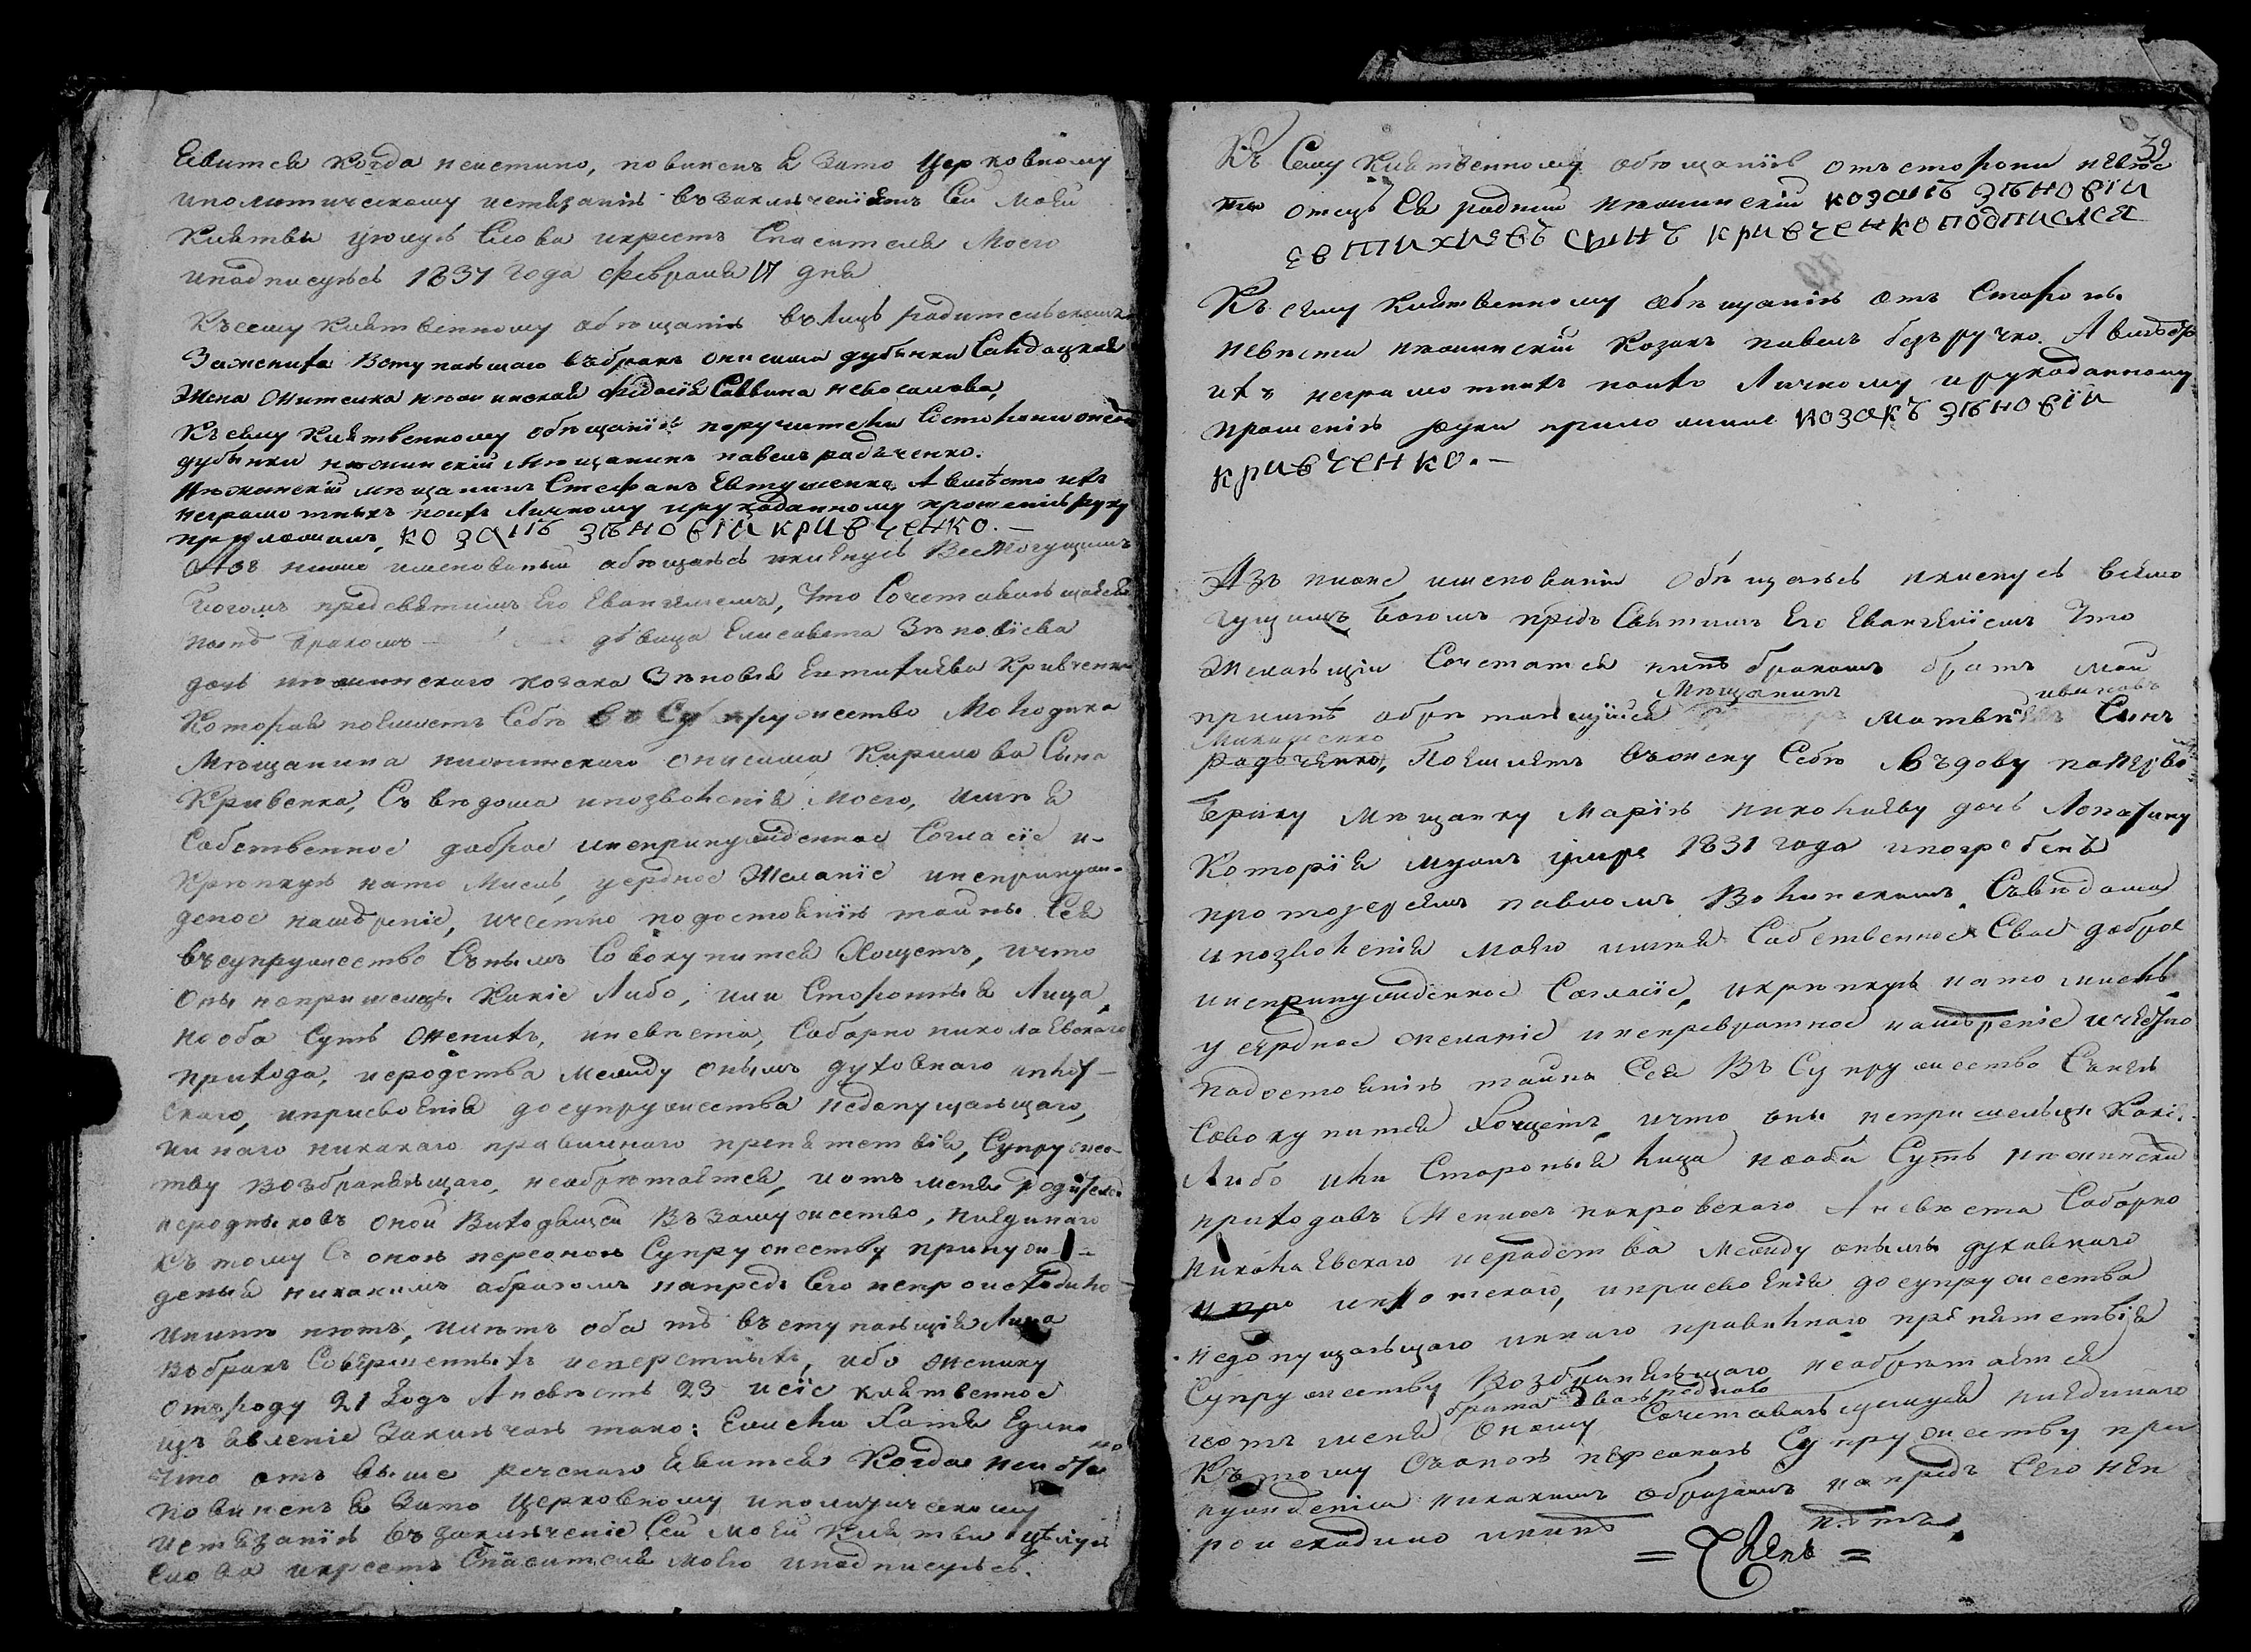 Євится когда неистино, повиненъ я зато Церковному
иполитическому истязанію въ заключеніемъ Сей Моей
Клятвы цѣлую Слова икрестъ Спасителя Моего
иподписуюсь 1831 года февраля 17 дня
Къ сему клятвенному обѣщанію въ лицѣ родительскомъ
Жениха Вступающаго въ бракъ онисима дубинки Солдацкая
Жена нѣжинская Савина
Къ сему клятвенному обѣщанію поручители Состороны онисима
дубинки нѣжинскій мѣщанинъ павелъ радченко.
Нѣжинскій мѣщанинъ Стефанъ Евтушенко. А вмѣсто ихъ
неграмотныхъ поихъ личному ирукоданному прошенію руку
приложилъ, козакъ зѣновій кривченко.
Азъ ниже именованый обѣщаюсь иклянусь Всемогущимъ
Богомъ предсвятымъ Его Евангелиемъ, что Сочетавающаяся
нынѣ бракомъ дѣвица Елисавета Зѣновіева
дочь нѣжинского козака Зѣновія Евтихіева Кривченка
Которая поемлетъ Себѣ въ Супружество Молодика
Мѣщанина нѣжинского онисима Кирилова Сына
Кривенка, Съ вѣдома ипозволенія Моего, имѣя
Собственное доброе инепринужденное Согласіе и-
Крѣпкую нато Мисль, усердное Желаніе инепринуж-
деное намѣреніе, ичестно подостоянію тайны Сея
въ супружество Сънымъ Совокупится Хощетъ, ичто
Оны непришелцы Какіе Либо, или Сторонныя Лица,
нооба Суть Женихъ, иневѣста, Соборно николаевского
прихода, иеродства Между онымъ духовного иплот-
ского, иприсвоенія досупружества недопущающаго,
инаго никакого правилного препятствія, Супружес-
тву возбраняющаго, необрѣтается, иотъ мене родителя
иеродныховъ оной Виходящей Въ Замужество, ниединого
къ тому Съ оною персоною Супружеству принуж-
деныя никакимъ образомъ напредь Сего непроисходило
инынѣ нетъ, иимѣтъ оба тѣ въступающія Лица
въ бракъ Совершенныхъ, ибо Жениху
отъ роду 21 Годъ Аневѣсть 23 исіе клятвенное
изъявленіе Заключаю тако: Ежели Хотя Едино
что отъ выше реченого Явится Когда неистино
повиненъ я Зато Церковному иполитическому
истязанію въ заключеніе Сей Моей Клятвы цѣлую
Слова икрестъ Спасителя Моего иподписуюсь.
39
Къ Сему Клятвенному обѣщанію отъ стороны невѣс
ты отецъ Ея родный нѣжинскій козакъ зѣновій
евтихиевъ синъ кривченко подписался
Къ сему Клятвенному обѣщанію отъ Стороны
невѣсты нѣжинскій Козакъ павелъ безручко. А вмѣсто
ихъ неграмотныхъ поихъ Личному ирукоданному
прошенію руки приложилъ козакъ зѣновій
кривченко.—
Азъ ниже именованій Обѣщаюсь иклянусь всемо
гущимъ Богомъ предъ Святымъ Его Евангеліемъ Что
Желающій Сочетатся нынѣ бракомъ братъ мой
Мѣщанинъ ивановъ
Матвѣй Синъ
Радченко, Поемлетъ въ жену Себѣ Въдову поперво
Браку Мѣщанку Марію николаеву дочь
Которія мужъ умре 1831 года ипогребенъ
протоіереемъ павломъ Волинскимъ. Съвѣдома
ипозволенія моего имѣя Собственное Свое доброе
инепринужденное Согласіе, икрѣпкую нато мисль
усердное желаніе инепревратное намѣреніе ичестно
подостоянію тайны Сея Въ Супружество Съными
Совокупится Хощетъ, ичто оны непришелцы Какіе
Либо или Стороныя Лица нооба Суть нѣжински
приходовъ Женихъ покровского Аневѣста Соборно
николаевского иеродства Между онымъ духовного
иплотского, иприсвоенія досупружества
недопущающаго инаго правилнаго препятствія
Супружеству Возбраняющаго необрѣтается
брата родного
иотъ мене оному Сочетавающемуся ниединого
Къ тому Съоною персоною Супружеству при
нужденія никакимъ образомъ напредъ Сего неп
роисходило инынѣ нетъ
= Члень =